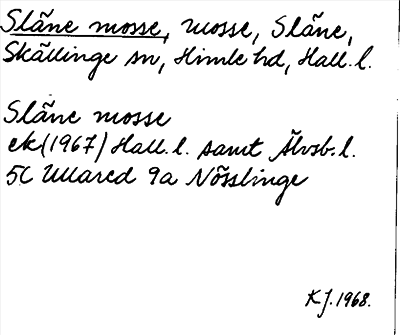 Slåne mosse, mosse, Slåne,
Skällinge sn, Himle hd, Hall. l.
Slåne mosse
ek (1967) Hall. l. samt Älvsb. l.
5C Ullared 9a Nösslinge
KJ. 1968.